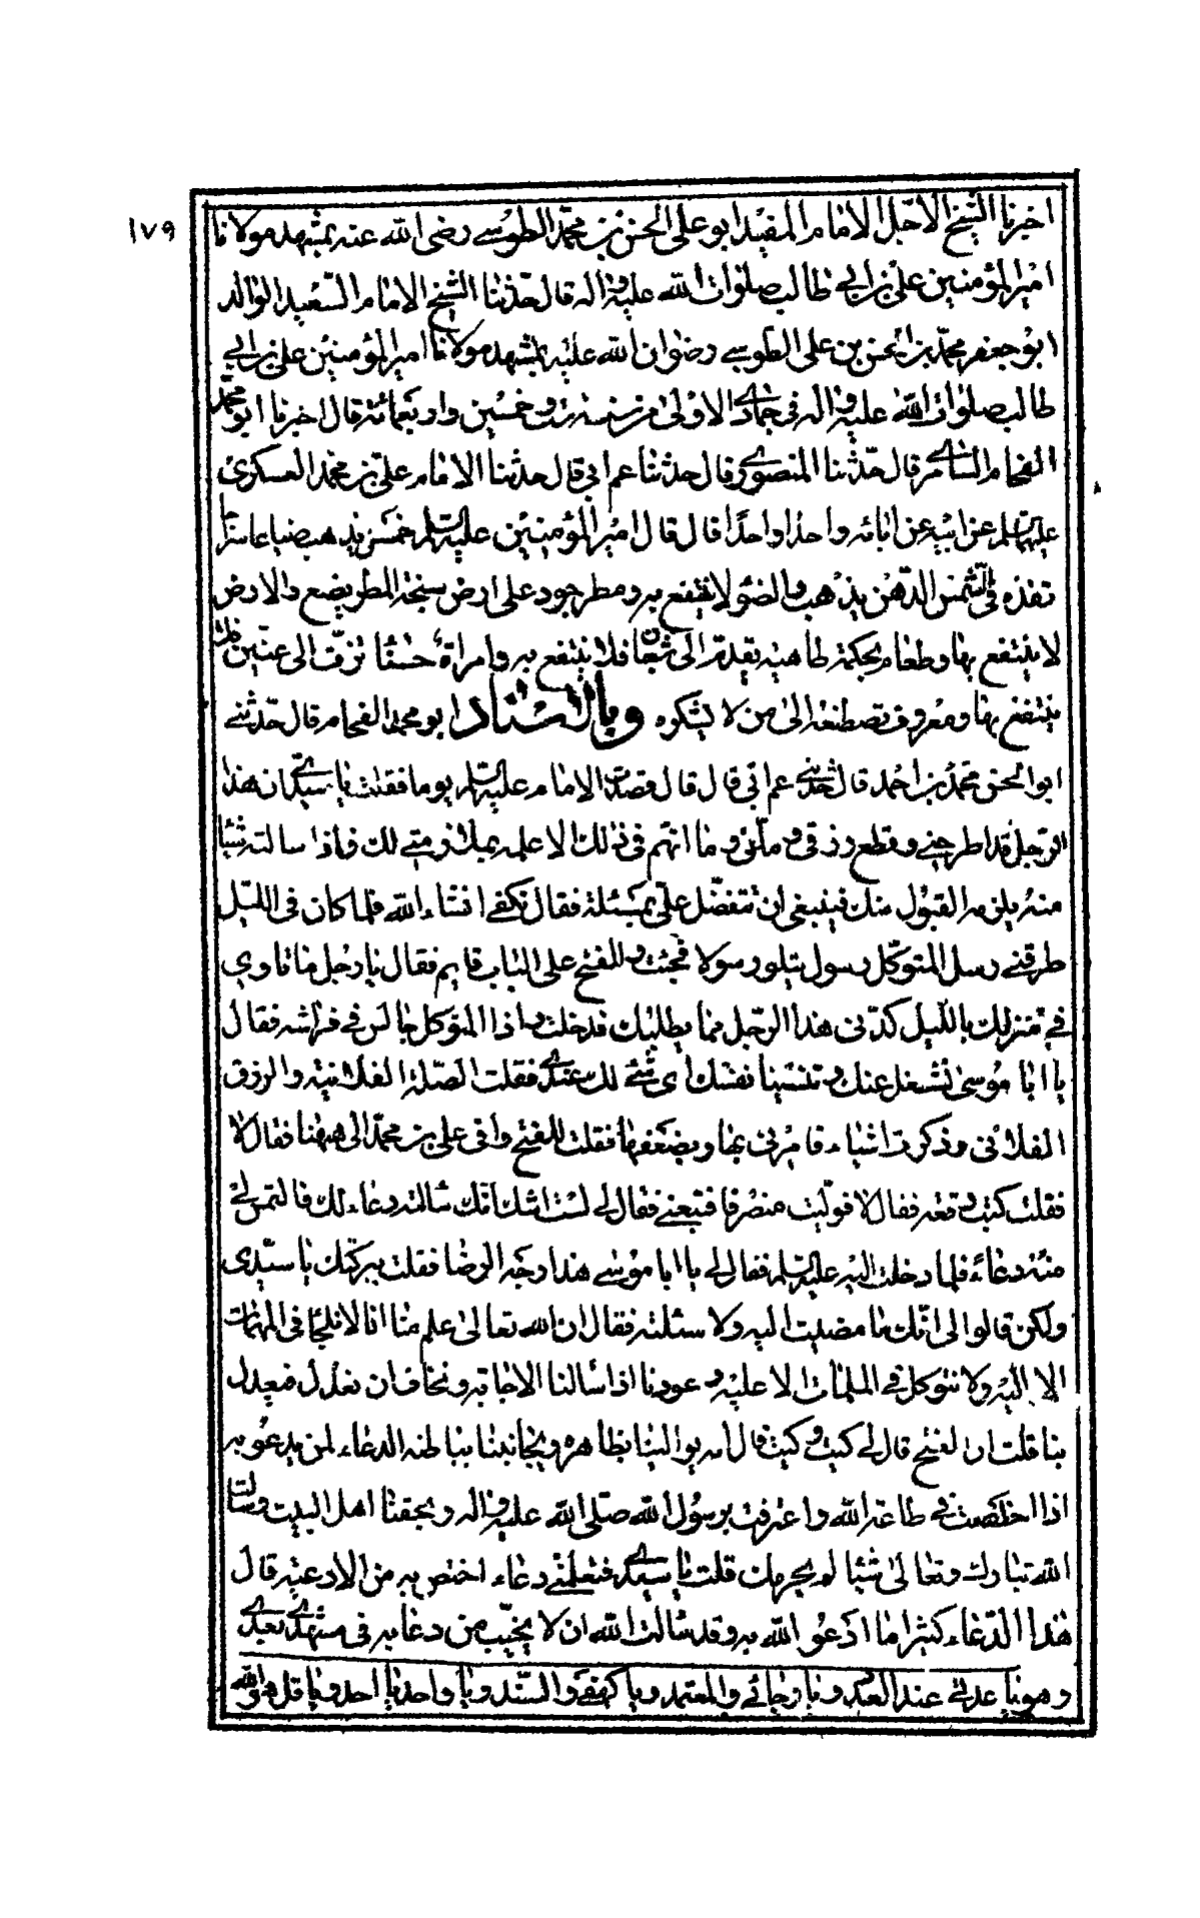 ١٧٩
اخبرنا الشيخ الاجل الامام المفيد ابو علي الحسن بن محمد الطوسي رضى الله عنه بمشهد مولانا
امير المؤمنين علي بن ابي طالب صلوات الله عليه واله قال حدثنا الشيخ الامام السعيد الوالد
ابو جعفر محمد بن الحسن بن على الطوسي رضوان الله عليه بمشهد مولانا امير المؤمنين على بن ابي
طالب صلوات الله عليه واله فى جمادى الاولى من سنة ست وخمسين واربعمائة قال اخبرنا ابو محمد
الفحام السامرى قال حدثنا المنصورى قال حدثنا عم ابى قال حدثنا الامام على بن محمد العسكرى
عليه السلم عن ابيه عن ابائه واحدا واحدا قال قال امير المؤمنين عليه السلم خمس يذهب ضياعا سراج
تقذه فى الشمس الدهن يذهب والضو لا ينتفع به ومطر جود على ارض سبخة المطر يضع والارض
لا ينتفع بها وطعام يحكمه طاهيه يقدم الى شبعان فلا ينتفع به وامراة حسنا تزف الى عنين فلا
ينتفع بها ومعروف تصطنعه الى من لا يشكره وبالاسناد ابو محمد الفحام قال حدثنى
ابو الحسن محمد بن احمد قال حدثنى عم ابى قال قال قصدت الامام عليه السلم يوما فقلت يا سيدى ان هذا
الرجل قد اطرحنى وقطع رزقى وملنى وما اتهم فى ذلك الا علمه بملازمتى لك فاذا سالته شيئا
منه يلزمه القبول منك فينبغى ان تتفضل على بمسئلته فقال تكفى انشاء الله فلما كان فى الليل
طرقنى رسل المتوكل رسول يتلو رسولا فجئت والفتح على الباب قايم فقال يا رجل ما تاوى
فى منزلك بالليل كدنى هذا الرجل مما يطلبك فدخلت واذا المتوكل جالس فى فراشه فقال
يا ابا موسى نشغل عنك وتنسينا نفسك اى شئ لك عندى فقلت الصلة الفلانية والرزق
الفلانى وذكرت اشياء فامر لى بها وبضعفها فقلت للفتح وافى على بن محمد الى ههنا فقال لا
فقلت كتب رقعة فقال لا فوليت منصرفا فتبعنى فقال لى لست اشك انك سالته دعاء لك فالتمس لى
منه دعاء فلما دخلت اليه عليه السلم فقال لى يا ابا موسى هذا وجه الرضا فقلت ببركتك يا سيدى
ولكن قالوا لى انك ما مضيت اليه ولا سئلته فقال ان الله تعالى علم منا انا لا نلجا فى المهمات
الا اليه ولا نتوكل فى الملمات الا عليه وعودنا اذا سالنا الاجابة ونخاف ان نعدل فيعدل
بنا قلت ان الفتح قال لى كيت وكيت قال انه يوالينا بظاهره ويجانبنا بباطنه الدعاء لمن يدعو به
اذا اخلصت فى طاعة الله واعترفت برسول الله صلى الله عليه واله وبحقنا اهل البيت وسالت
الله تبارك وتعالى شيئا لم يحرمك قلت يا سيدى فتعلمنى دعاء اختص به من الادعية قال
هذا الدعاء كثيرا ما ادعو الله به وقد سالت الله ان لا يخيب من دعا به فى مشهدى بعدى
وهو يا عدتى عند العدد ويا رجائى والمعتمد ويا كهفى والسند ويا واحد يا احد ويا قل هو الله